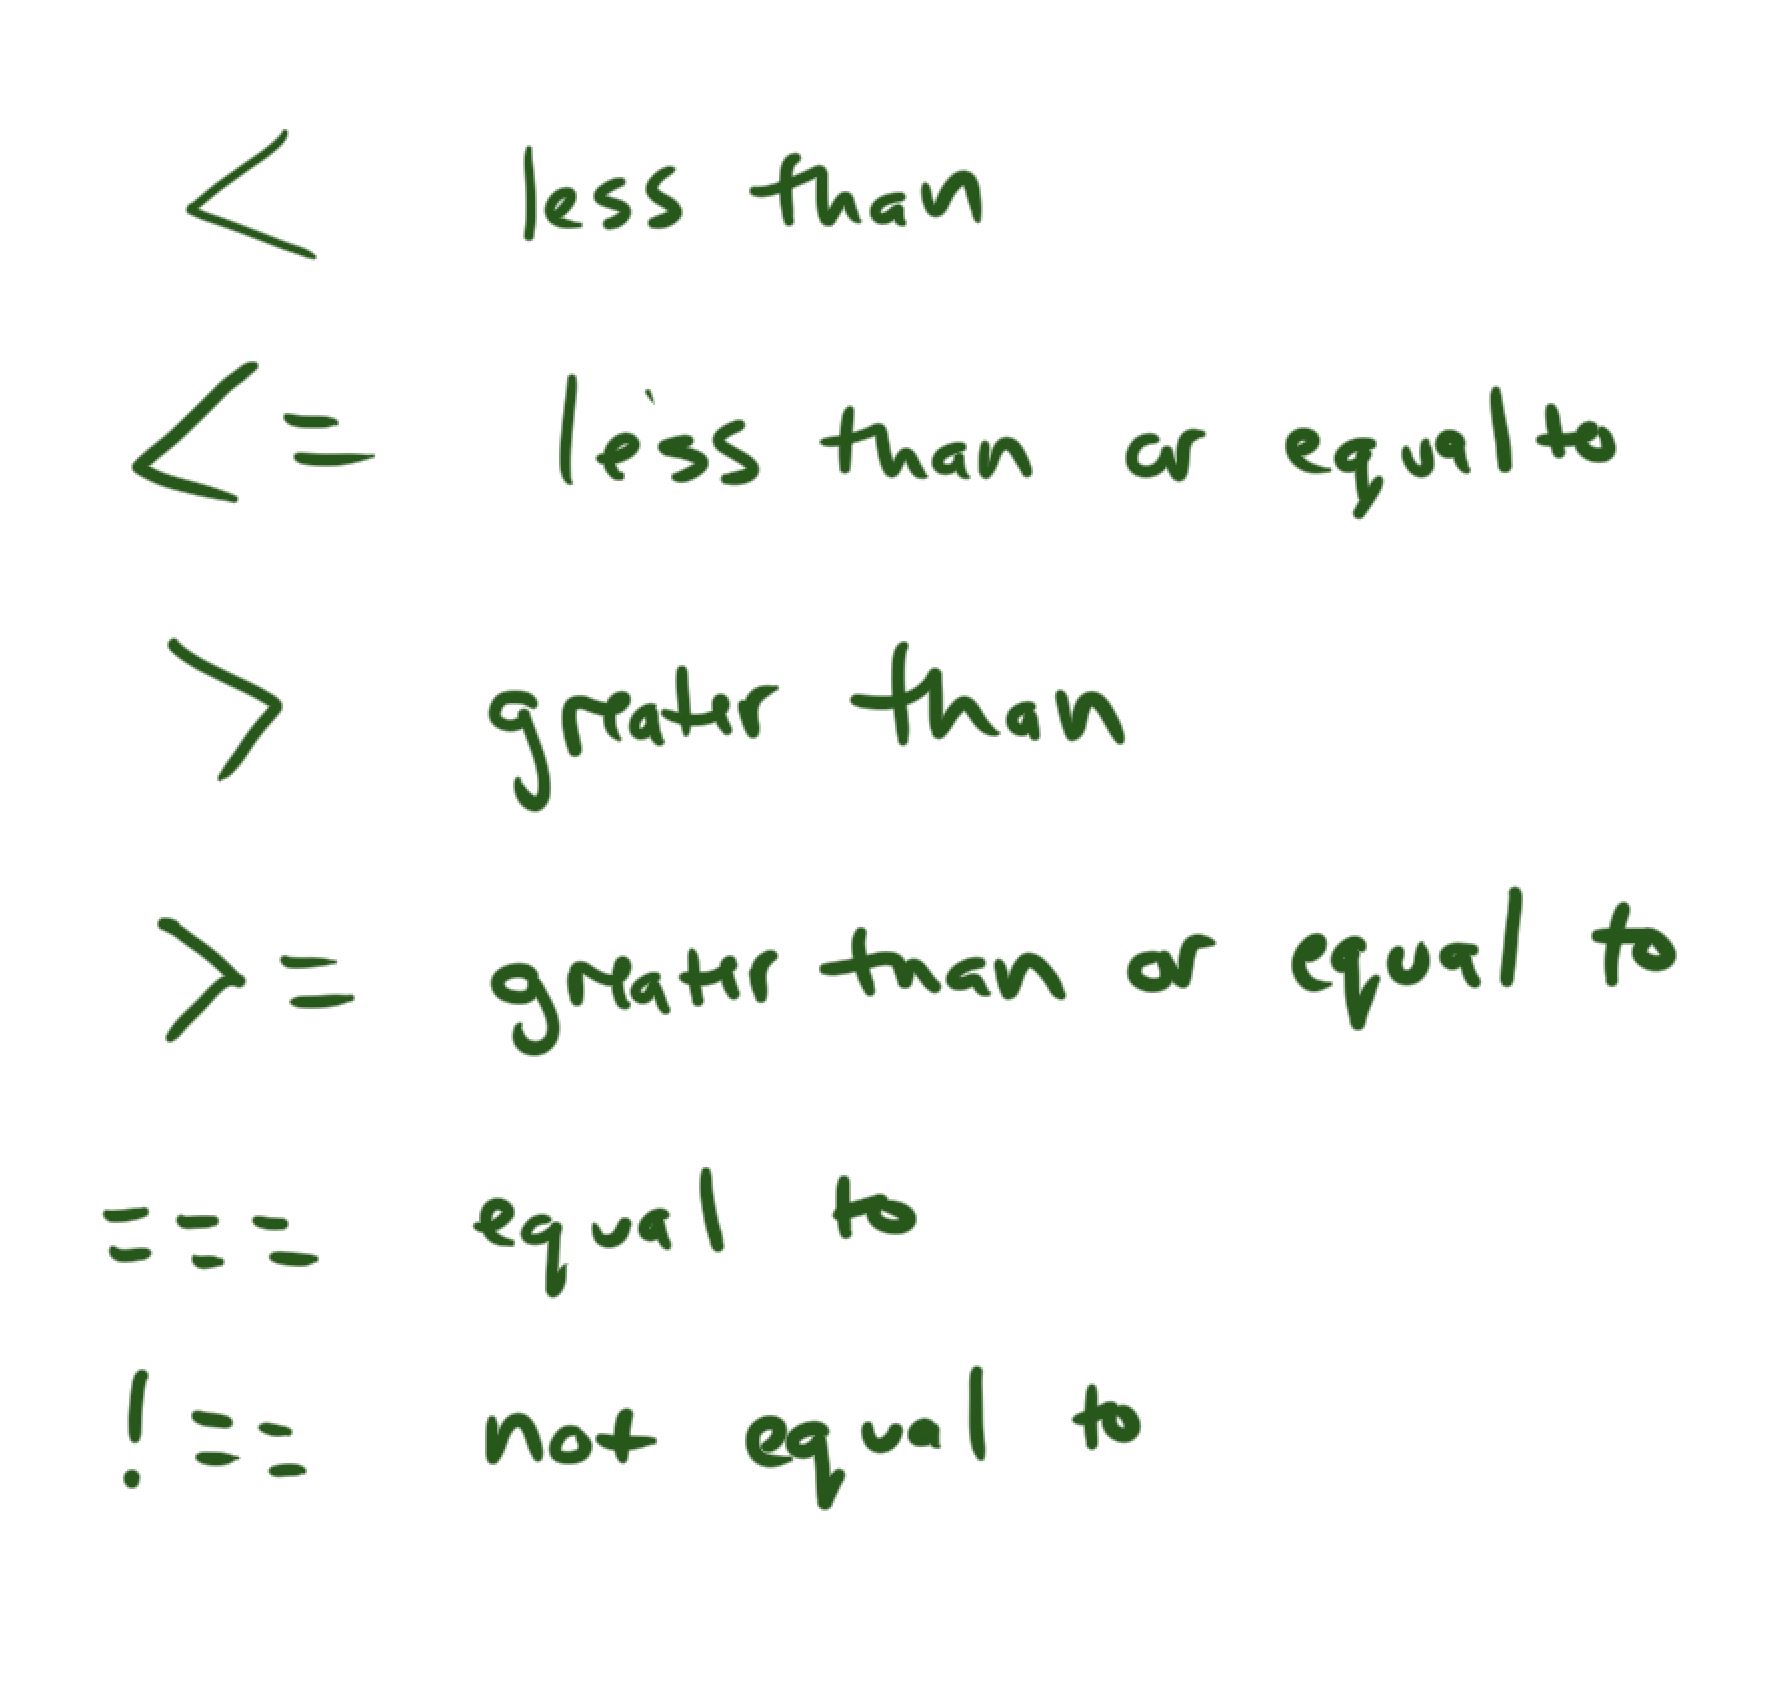 < less than
<= less than or equal to
> greater than
>= greater than or equal to
=== equal to
!== not equal to